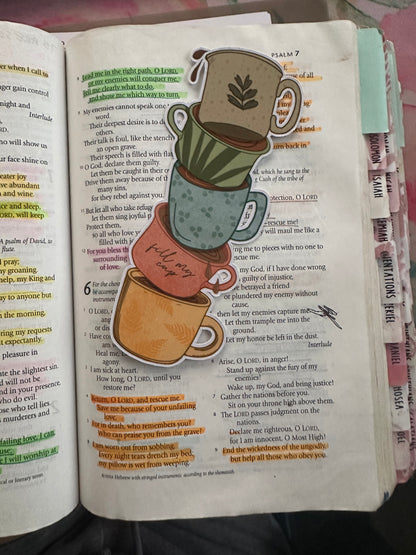 er when I call to
ger gain control
night and
Interlude
who will show us
r face shine on
eater joy
ve abundant
n and wine.
ce and sleep,
ORD, will keep
A psalm of David, to
flute.
I pray;
my groaning.
help, my King and
ay to anyone but
n the morning.
ring my requests
t expectantly.
pleasure in
ate the slightest sin.
d will not be
d in your presence.
ho do evil.
se who tell lies.
s murderers and
nfailing love, I can
use;
I will worship at
cal or literary term.
PSALM 7
Lead me in the right path, O LORD,
or my enemies will conquer me.
Tell me clearly what to do,
and show me which way to turn.
9 My enemies cannot speak one
word.
Their deepest desire is to
others.
Their talk is foul, like the stench
an open grave.
Their speech is filled with
10 O God, declare them guilty.
Drive them away because of
many sins,
for they rebel against you.
11 But let all who take refuge
let them sing joyful
Protect them,
so all who love
filled with
12 For you bless the
surrounding
of love.
6 For the choir
accompanied
instrument
1 O LORD,
or
2 Have
for
Heal me,
agony.
3 I am sick at heart.
How long, O LORD, until you
restore me?
4 Return, O LORD, and rescue me.
Save me because of your unfailing
love.
5 For in death, who remembers you?
Who can praise you from the grave?
6 I am worn out from sobbing.
Every night tears drench my bed;
my pillow is wet from weeping.
Hebrew with stringed instruments; according to the sheminith.
me of all
and
turn back in
David, which he sang to the
Cush of the tribe of
protection, O LORD
rescue me!
will maul me like a
ing me to pieces with no one to
rescue me.
my God, if I have done wrong
guilty of injustice,
betrayed a friend
or plundered my enemy without
cause,
then let my enemies capture me.
Let them trample me into the
ground.
Let my honor be left in the dust.
Interlude
6 Arise, O LORD, in anger!
Stand up against the fury of my
enemies!
Wake up, my God, and bring justice!
7 Gather the nations before you.
Sit on your throne high above them.
8 The LORD passes judgment on the
nations.
Declare me righteous, O LORD,
for I am innocent, O Most High!
9 End the wickedness of the ungodly,
but help all those who obey you.
fill my
cup
SOLOMON
ISAIAH
JEREMIAH
LAMENTATIONS
EZEKIEL
DANIEL
HOSEA